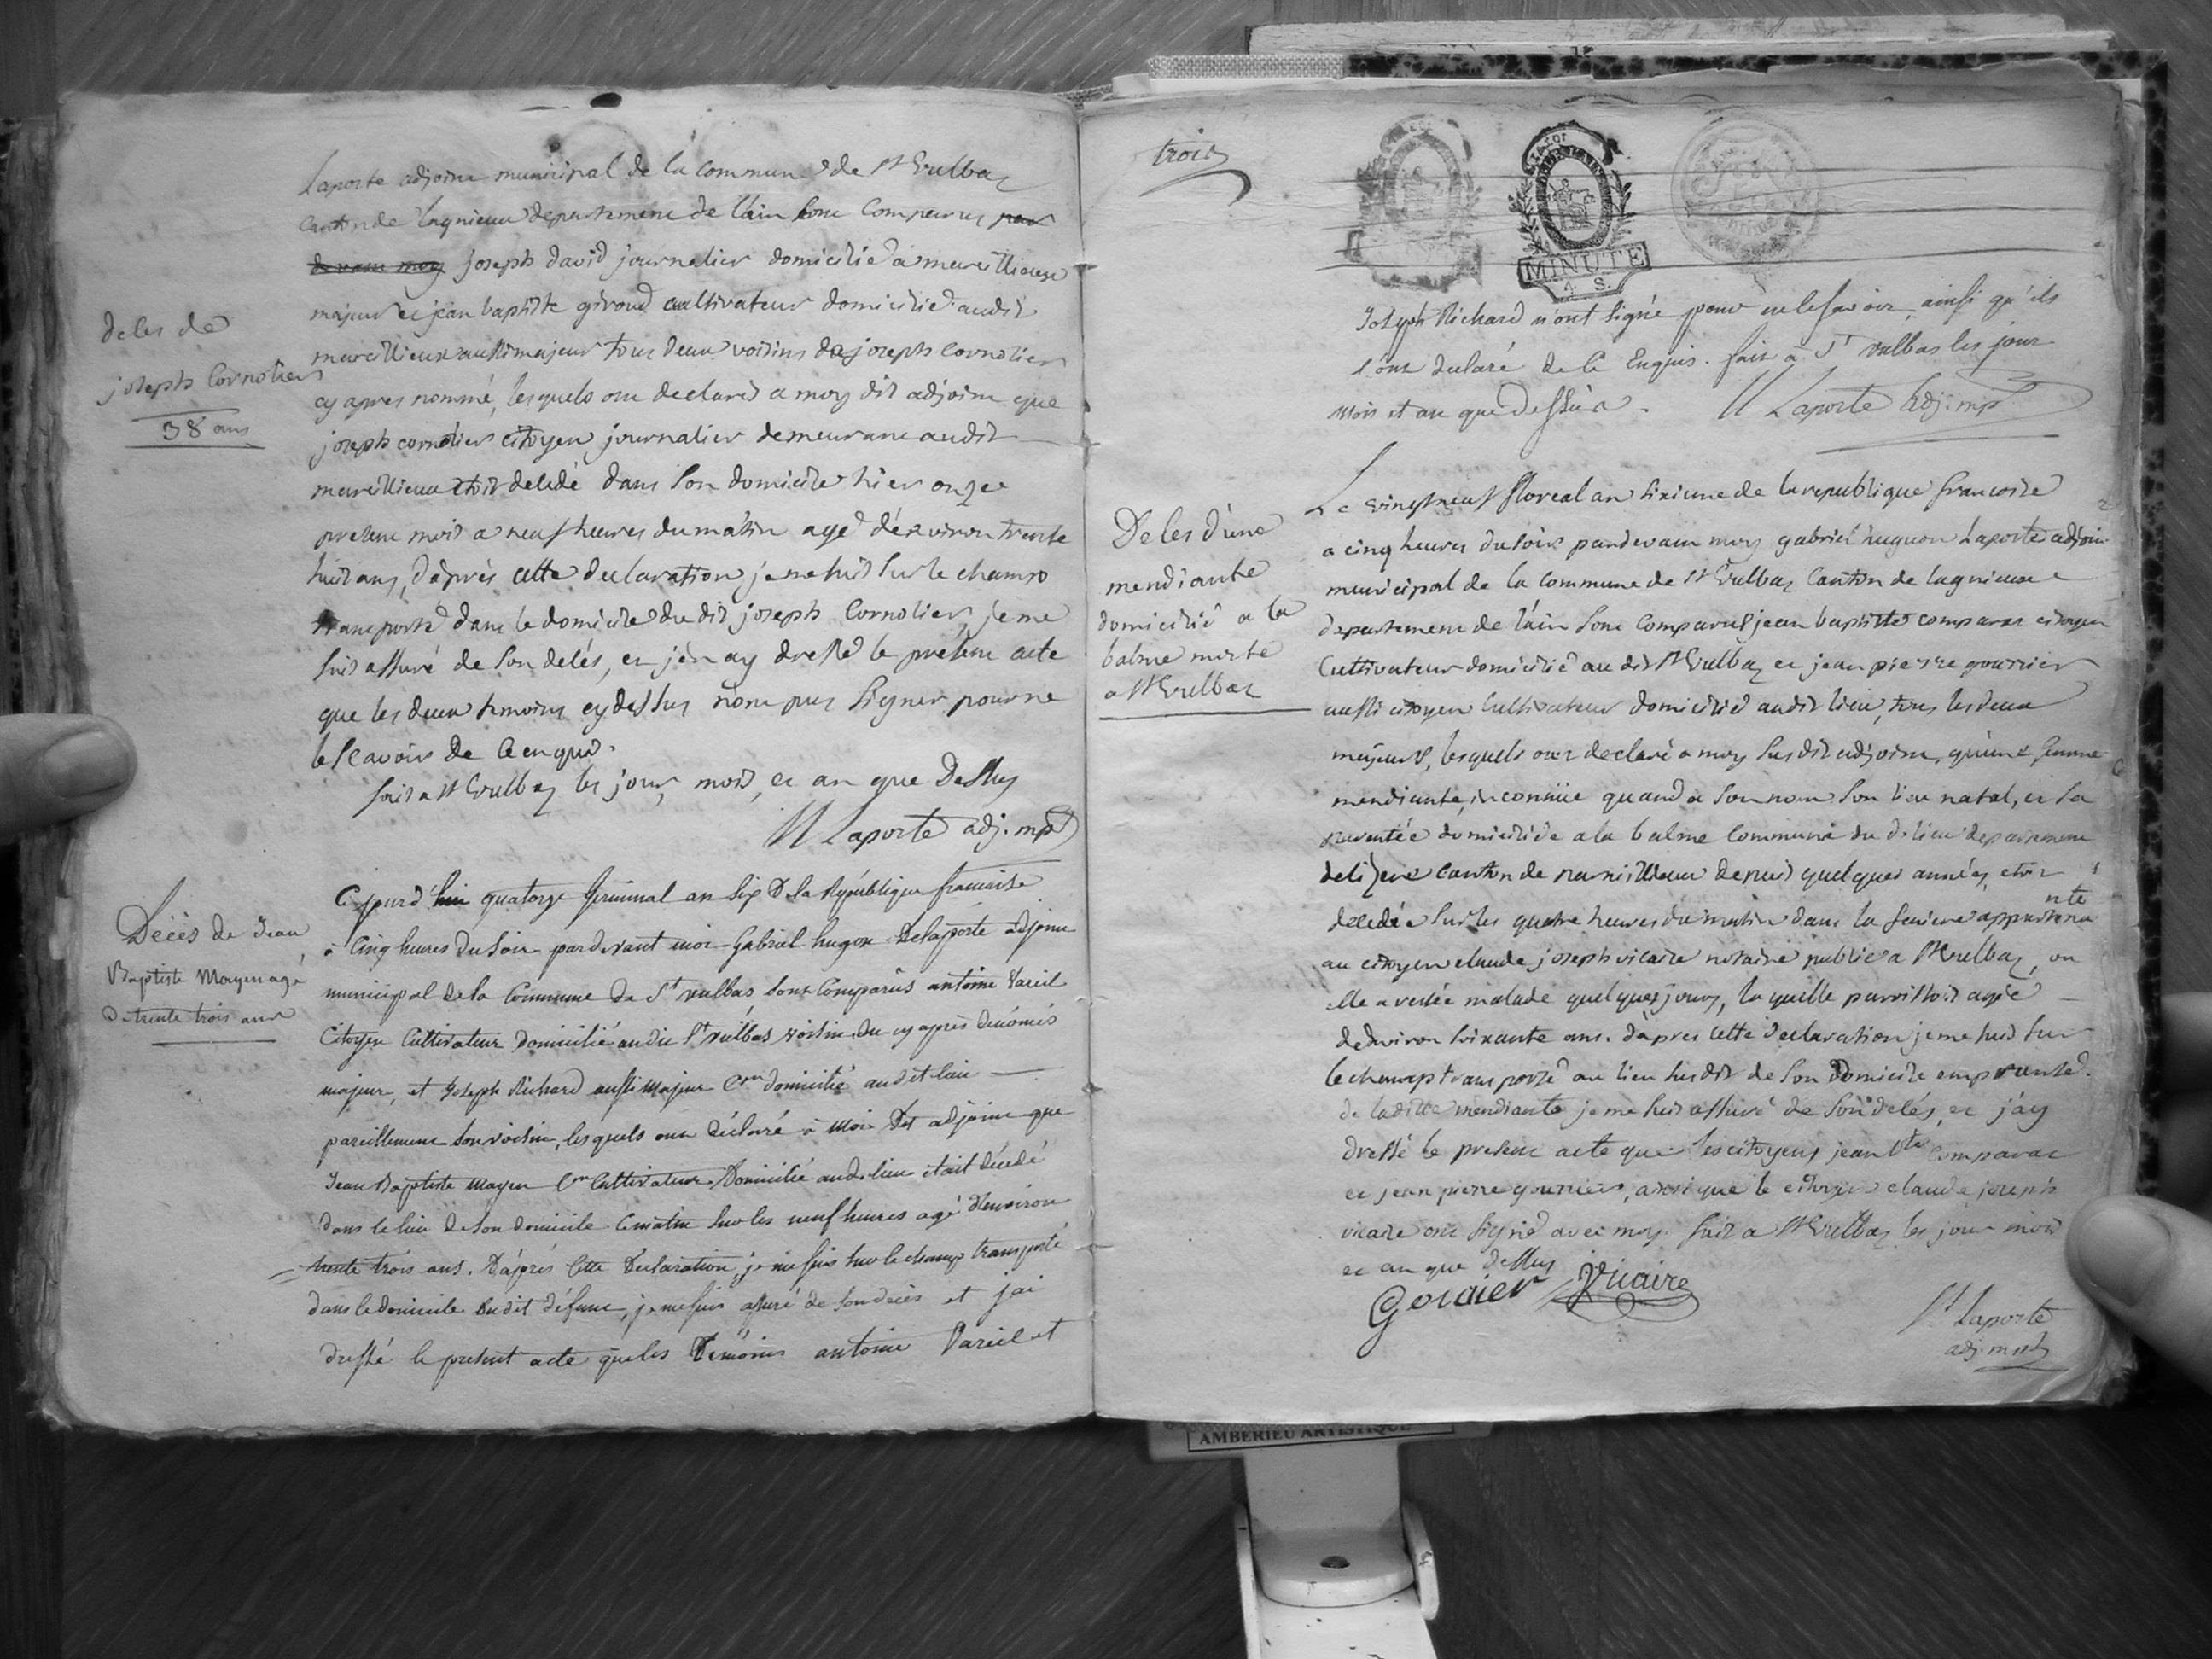 Laporte adjoint municipal de la commune de St Vulbaz
canton de lagnieux departement de lain sont comparus par
devant moy joseph david journalier domicilié a marcillieux
majeur et jean baptiste giroud cultivateur domicilié audit
marcillieux aussi majeur tous deux voisins de joseph Cornolier
cy apres nommé, lesquels ont declaré a moy dit adjoint que
joseph cornolier citoyen journalier demeurant audit
marcillieux etoit decedé dans son domicile hier onze
present mois a neuf heures du matin agé d'environ trente
huit ans, d'après cette declaration je me suis sur le champ
transporté dans le domicile du dit joseph Cornolier, je me
suis assuré de son decés, et j'en ay dressé le present acte
que les deux temoins cy dessus n'ont pus signer pour ne
le scavoir de ce enquis.
fait a St Vulbaz les jour, mois, et an que Dessus
Laporte adj. mpl
deces de
joseph Cornolier
38 ans
Cejourd'hui quatorze Germinal an six de la République francaise
à cinq heures du soir pardevant moi Gabriel hugon Delaporte adjoint
municipal de la Commune de St vulbas sont Comparûs antoine Pareil
Citoyen Cultivateur domicilié audit St vulbas voisin du cy après denomés
majeur, et Joseph Richard aussi Majeur Cen domicilié audit lieu
pareillement son voisin, lesquels ont déclaré à Moi Dit adjoint que
Jean Baptiste Moyen Cen Cultivateur Domicilié aud. lieu était décedé
dans le lieu de son domicile Ce matin sur les neuf heures agé d'environ
trente trois ans. D'après Cette Declaration, je me suis sur le champ transporté
dans le Domicile dudit défunt, je me suis assuré de son deces et j'ai
dressé le présent acte que les Témoins antoine Pareil et
Décès de Jean
Baptiste Moyen agé
de trente trois ans
trois
MINUTE
4. S.
Joseph Richard n'ont signé pour ne le savoir, ainsi qu'ils
l'ont declaré de Ce Enquis. fait à St vulbas les jour
mois et an que Dessus.
Laporte adj. mpl
Le vingt neuf floreal an sixieme de la republique francoise
a cinq heures du soir pardevant moy gabriel hugon Laporte adjoint
municipal de la commune de St Vulbaz Canton de lagnieux
departement de l'ain sont comparus jean baptiste comparat citoyen
Cultivateur domicilié au dit St Vulbaz et jean pierre gourrier
aussi citoyen Cultivateur domicilié audit lieu, tous les deux
majeurs, lesquels ont declaré a moy susdit adjoint, qu'une femme
mendiante, inconnüe quand a son nom son lieu natal, et sa
parentée domiciliée a la balme commune du d. lieu departement
delizere canton de depuis quelques années, etoit
decedée sur les quatre heures du matin dans la feniere appartenante
au citoyen claude joseph vicaire notaire public a St Vulbaz, ou
elle a restée malade quelques jours, laquelle paroissoit agée
denviron soixante ans. d'apres cette declaration je me suis sur
le champ transporté au lieu susdit de son Domicile emprunté.
de la ditte mendiante je me suis assuré de son decés, et j'ay
dressé le present acte que les citoyens jean Bte comparat
et jean pierre gourrier, ainsi que le citoyen claude joseph
vicaire ont signé avec moy. fait a St Vulbaz les jour mois
et an que dessus
Gouraier Vicaire
Laporte
adj. mpl
Deces d'une
mendiante
domicilié a la
balme morte
a St Vulbaz
AMBERIEU ARTISTIQUE